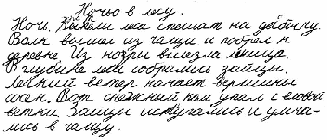 Ночью в лесу
Ночь. Жители леса спешат на добычу.
Волк вышел из чащи и побрёл к
деревне. Из норы вылезла лисица.
В глубине леса собрались зайцы.
Лёгкий ветер качает вершины
ёлок. Вот снежный ком упал с еловой
ветки. Зайцы испугались и умча-
лись в чащу.